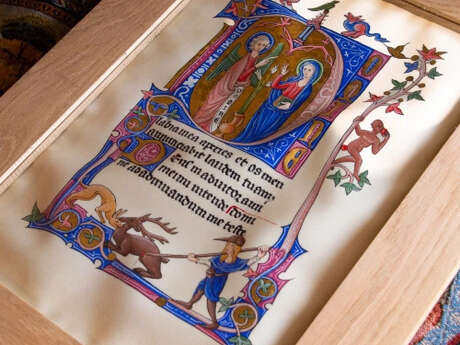 labia mea apries et os meu
annunciabit laudem tuam
Deus in adiutoriu
meum intende domi
ne ad adiuuandum me festi